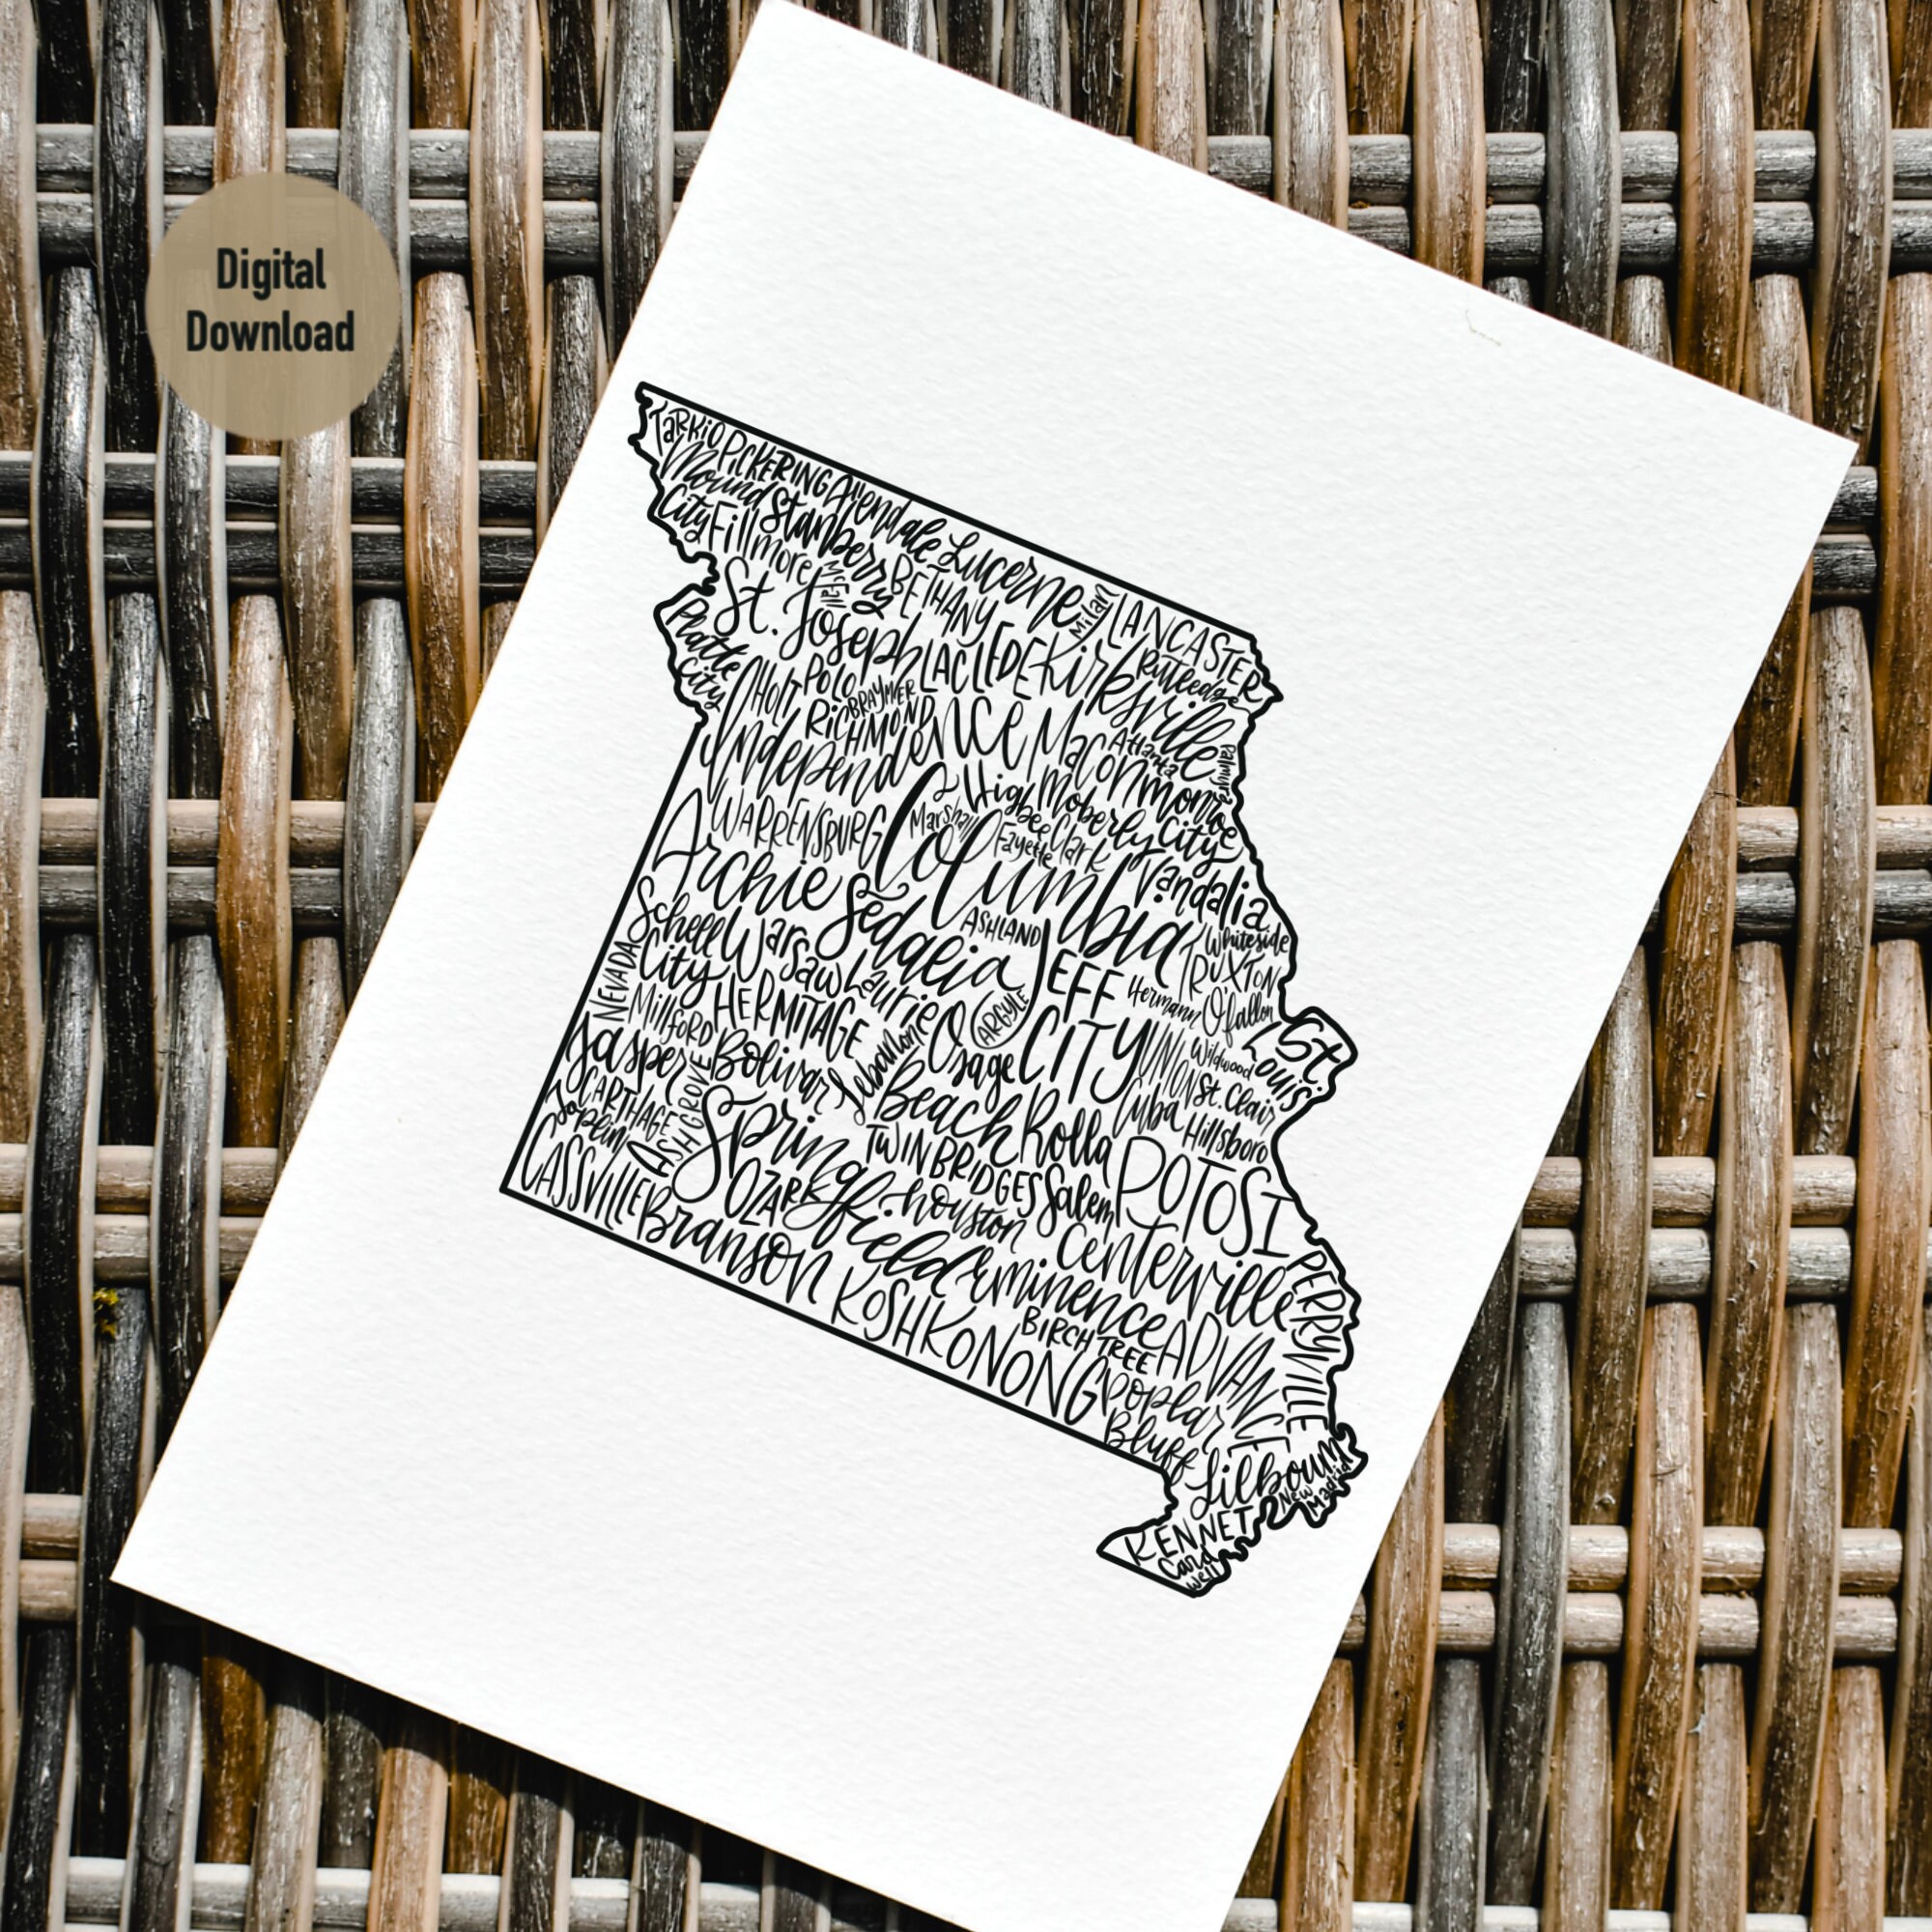 Digital
Download
TaRKiO
PICKERING
Allendale
Mound
City
Stanberry
Fillmore
McFall
BETHANY
Lucerne
Milan
LANCASTER
St. Joseph
Platte
City
LACLEDE
Kirksville
Rutledge
HOLT
POLO
BRAYMER
RICHMOND
Independence
Macon
Atlanta
Palmyra
Monroe
City
WARRENSBURG
Marshall
Higbee
Moberly
Fayette
Clark
Columbia
Vandalia
Archie
Sedalia
ASHLAND
Whiteside
TRUXTON
Schell
City
Warsaw
Laurie
JEFF
CITY
Hermann
O'fallon
NEVADA
Millford
HERMITAGE
ARGYLE
Osage
Beach
UNION
Wildwood
St.
Louis
Jasper
Bolivar
Lebanon
St. Clair
CARTHAGE
ASH GROVE
Joplin
Springfield
TWIN BRIDGES
Rolla
Cuba
Hillsboro
CASSVILLE
Branson
OZARK
houston
Salem
POTOSI
Centerville
PERRYVILLE
KOSHKONONG
Eminence
BIRCH TREE
ADVANCE
Poplar
Bluff
Lilbourn
New
Madrid
KENNET
Card
well